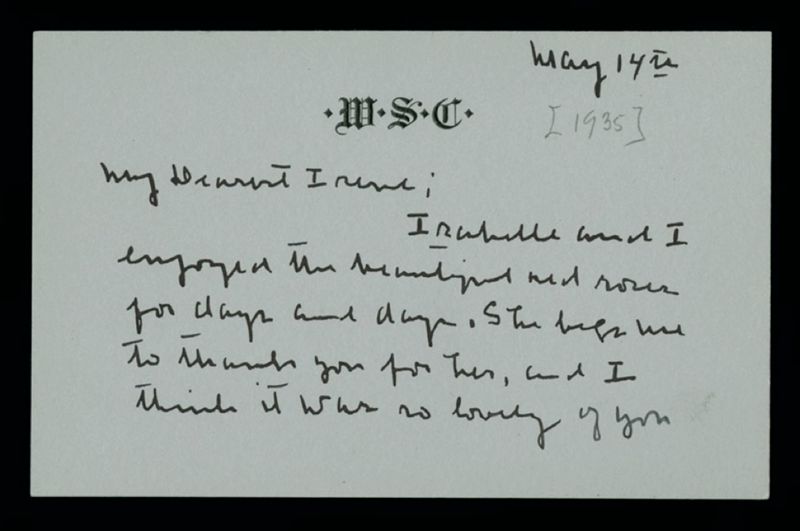 May 14th
·W·S·C·
[1935]
My Dearest Irene;
Isabelle and I
enjoyed the beautiful red roses
for days and days. She begs me
to thank you for her, and I
think it was so lovely of you